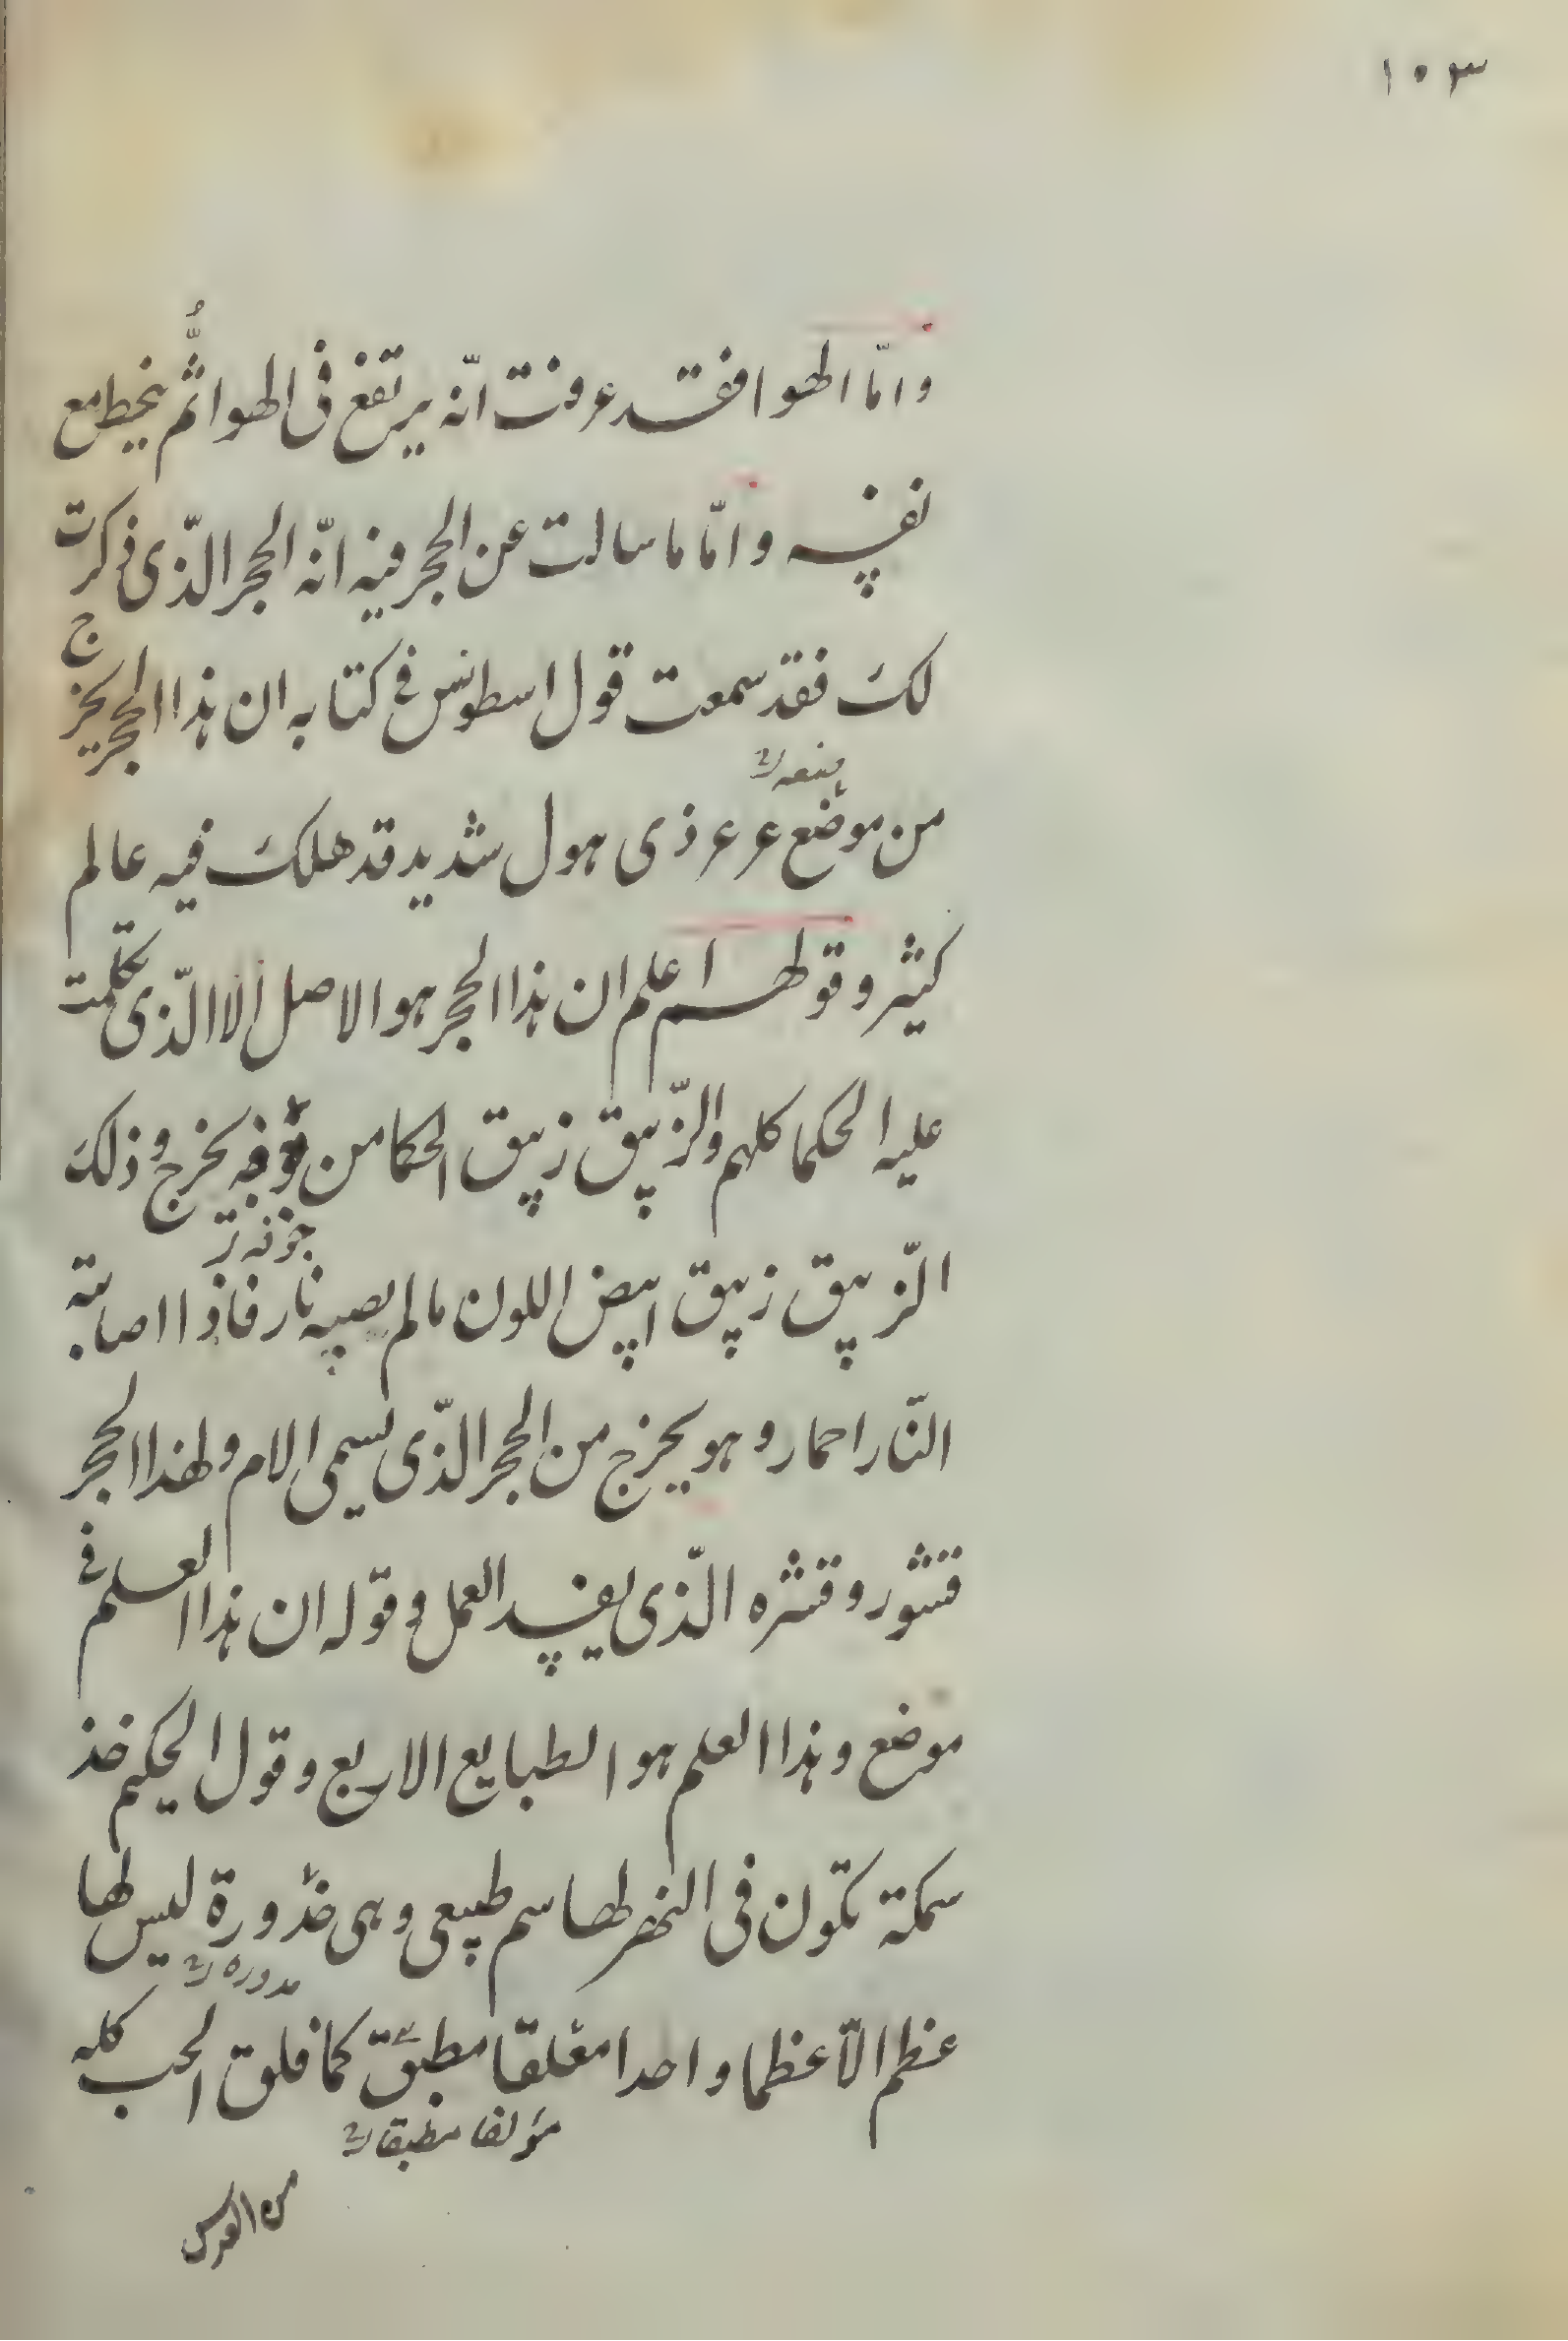 ١٠٣
وامّا الهوا فقد عرفت انّه يرتفع فى الهوا ثُمّ ينحط مع
نفسه وامّا ما سالت عن الحجر فيه انّه الحجر الّذى ذكرت
لك فقد سمعت قول اسطونس فى كتابه ان هذا الحجر يخرج
من موضع عرعر ذى هول شديد قد هلك فيه عالم
كثير وقولهم اعلم ان هذا الحجر هو الاصل الا الّذى تكلمت
عليه الحكما كلهم والزّيبق زيبق الحكما من يخرج وذلك
جوفه
الزّيبق زيبق ابيض اللون ما لم يصيبه نار فاذا اصابته
النّار احمار وهو يخرج من الحجر الّذى يسمى الام ولهذا الحجر
قشور وقشره الّذى يفسد العمل وقوله ان هذا العلم فى
موضع وهذا العلم هو الطبايع الاربع وقول الحكيم خذ
سمكة تكون فى النهر لها سم طبيعى وهى خدورة ليس لها
مدوره
عظم الّا عظما واحدا مغلقا مطبق كما فلق الحب كله
مؤلفا مطبقا
من العدس